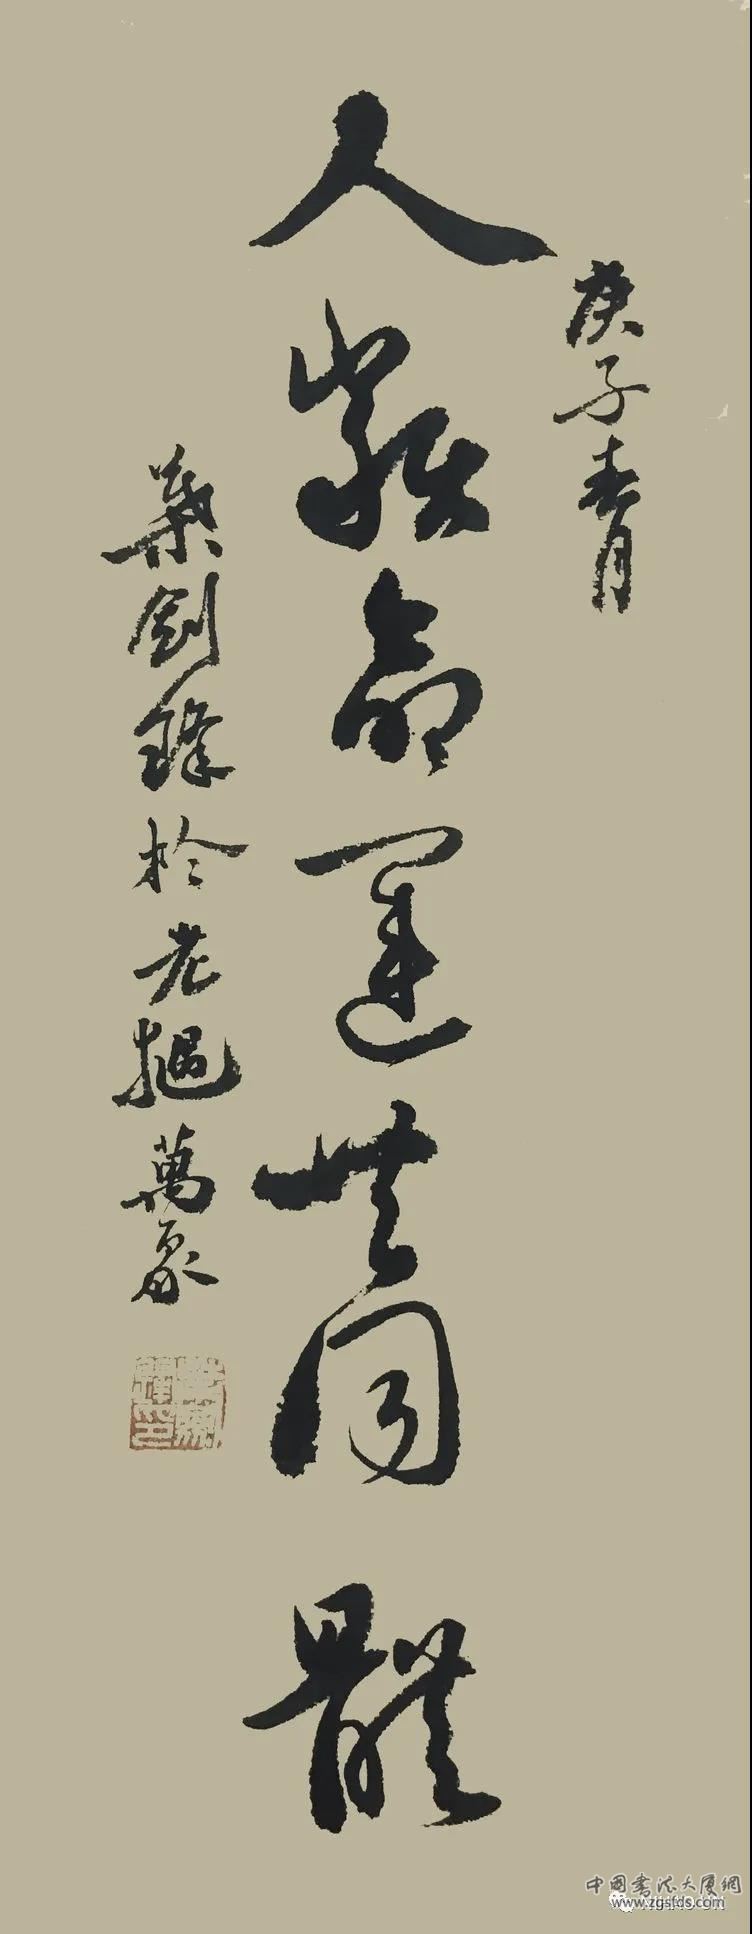 庚子春月
人類命運共同體
葉劍鋒於老撾萬象
中國書法大廈網
www.zgsfds.com